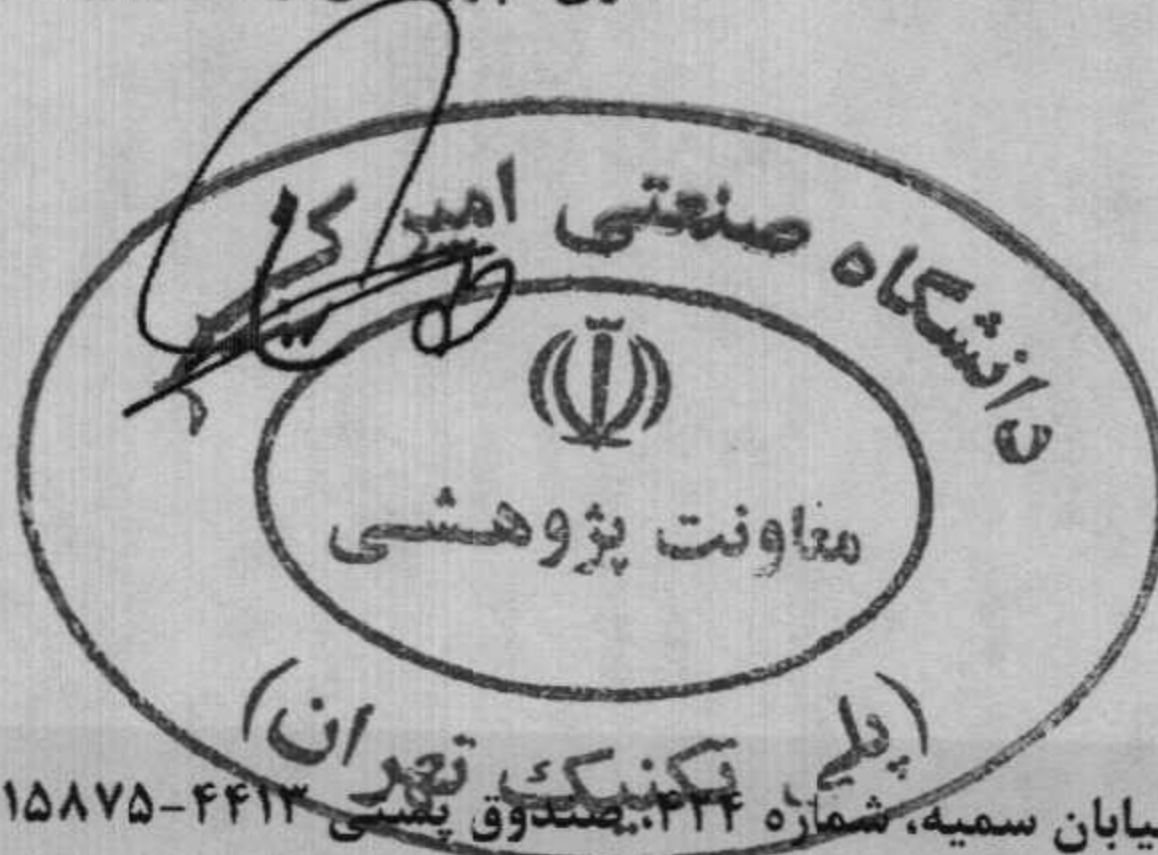 دانشگاه صنعتی امیر کبیر
معاونت پژوهشی
(پلی تکنیک تهران)
یابان سمیه، شماره ۴۲۴، صندوق پستی ۴۴۱۳-۱۵۸۷۵